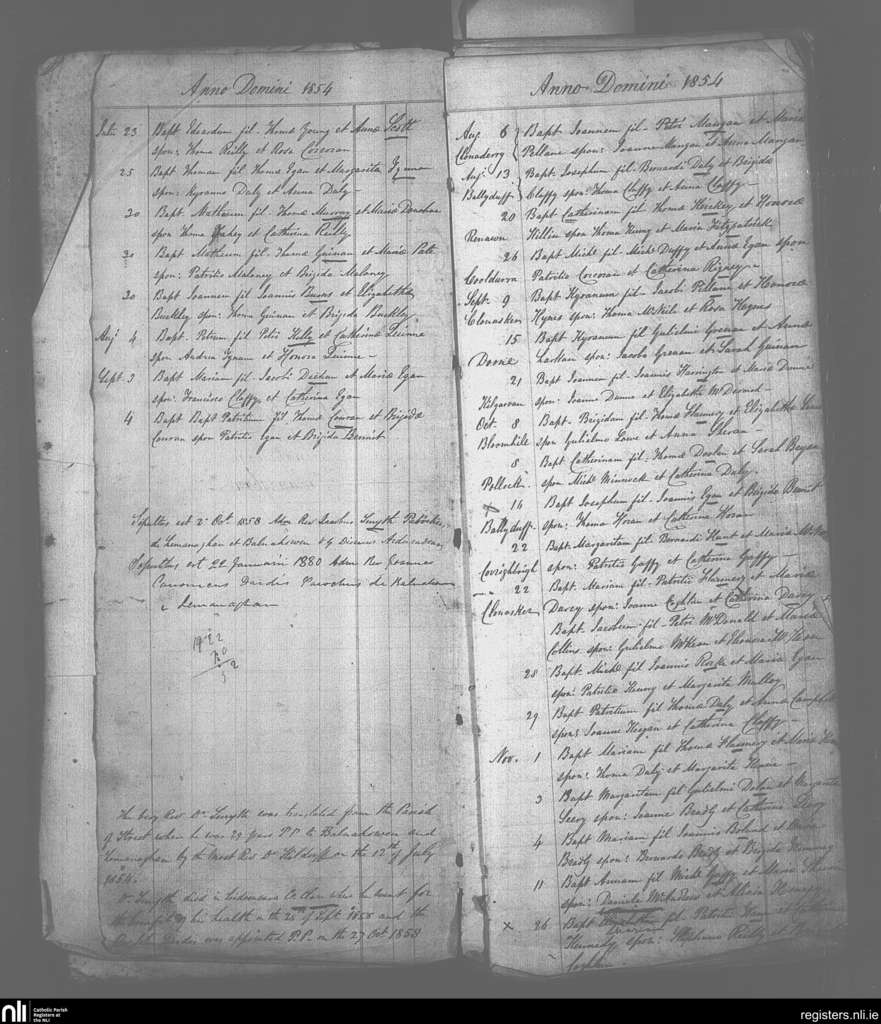 Anno Domini 1854
Julii 23 Bapt Edardum fil. Thomæ Young et Annæ Scott
spon: Thoma Reilly et Rosa Corcoran
25 Bapt Thomam fil Thomæ Egan et Margarita
spon: Kyranno Daly et Anna Daly
30 Bapt. Matheum fil. Thomæ Murray et Maria Donohoe
spon Thoma Fahey et Catherina Reilly
30 Bapt Matheum fil. Thomæ Guinan et Mariæ Pate
spon: Patritio Maloney et Brigida Maloney
30 Bapt Joannem fil Joannis Burns et Elizabetha
Buckley spon: Thoma Guinan et Brigida Buckley
Aug 4 Bapt. Petrum fil. Petri Kelly et Catherinæ
spon Andrea et Honora
Sept. 3 Bapt Mariam fil. Jacobi Deehan et Mariæ Egan
spon: Francisco Claffy et Catherina Egan
4 Bapt Bapt Patritium fil Thomæ Conran et Brigidæ
Conran spon Patritio Egan et Brigida Bennit
Sepultus est 2º Oct. 1858 Adm Rev Jacobus Smyth Parochus
de Lemanaghan et Balnahown et V G Diocesis Ardacadensis
Sepultus est 22 Januarii 1880 Adm Rev Joannes
Canonicus Dardis Parochus de Balnahown
& Lemanaghan
The Very Rev Dr Smyth was translated from the Parish
of Street when he was 29 years P.P. to Balnahown and
Lemanaghan by the Most Rev Dr Kilduff on the 17th of July
1854.
Dr Smyth died in Lisdoonvara Co Clare where he went for
the benefit of his health on the 20th of Sept 1858 and the
Dardis was appointed P.P. on the 27 Oct 1858
Anno Domini 1854
Aug 6 Bapt Joannem fil. Petri Mangan et Maria
Clonaderry Pellane spon: Joanne Mangan et Anna Mangan
Aug 13 Bapt. Josephum fil. Bernardi Daly et Brigida
Ballyduff Claffy spon: Thoma Claffy et Anna Claffy
20 Bapt Catherinam fil Thomæ Hickey et Honoræ
Killin spon Thoma Henry et Maria Fitzpatrick
26 Bapt Michl fil Michl Duffy et Annæ Egan spon
Cooldurra Patritio Corcoran et Catherina Rigney
Sept. 9 Bapt Kyranum fil. Jacobi Pellane et Honoræ
Clonasker Hynes spon: Thoma McNeil et Rosa Hynes
15 Bapt Kyranum fil Gulielmi Grenan et Annæ
Doone Larkam spon: Jacobo Grenan et Sarah Guinan
21 Bapt Joannem fil. Joannis Harrington et Maria Dunne
Kilgarvan spon: Joanne Dunne et Elizabetha McDermod
Oct. 8 Bapt. Brigidam fil. Thomæ Flannery et Elizabetha
Bloomhill spon Gulielmo Lowe et Anna Sheran
8 Bapt Catherinam fil. Thomæ Doolan et Sarah
Pollock spon Michl Minnock et Catherina Daly
x 16 Bapt Josephum fil. Joannis Egan et Brigida Bennit
Ballyduff spon: Thoma Horan et Catherina Horan
22 Bapt. Margaritam fil. Bernardi Hunt et Maria
spon: Patritio Gaffy et Catherina Gaffy
22 Bapt. Mariam fil. Patritii Flannery et Mariæ
Clonasker Davey spon: Joanne Coghlin et Catherina Davey
Bapt. Jacobum fil. Petri McDonald et Maria
Collins spon: Gulielmo McKeon et Eleonora McKeon
28 Bapt. Michl fil Joannis Rorke et Maria Egan
spon: Patritio Henry et Margarita Mulloy
29 Bapt Patritium fil Thomæ Daly et Anna Campbell
spon: Joanne Keegan et Catherina Claffy
Nov. 1 Bapt Mariam fil Thomæ Flannery et Maria
spon: Thoma Daly et Margarita
3 Bapt Margaritam fil Gulielmi Dolan et Margarita
spon: Joanne Brady et Catherina
4 Bapt Mariam fil Joannis Boland et Maria
Brady spon: Bernardo Brady et Brigida Flemming
11 Bapt Annam fil Michl Gaffy et Maria
spon: Daniele et Maria
x 26 Bapt fil. Patritii et
Kennedy spon: Stephano Reilly et
Coghlan
nli Catholic Parish
Registers at
the NLI
registers.nli.ie